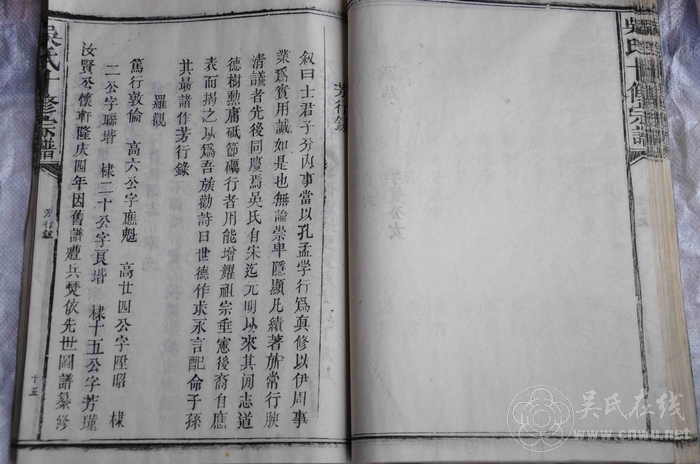 吳氏十修宗譜
芳行錄
叙曰士君子分內事當以孔孟学行爲真修以伊周事
業爲實用誠如是也無論崇卑隱顯凡績著旂常行映
清議者先後同慶焉吳氏自宋迄元明以來其间志道
德樹勲庸砥節礪行者用能增耀祖宗垂憲後裔自應
表而揭之以爲吾族勸詩曰世德作求永言配命子孫
其最諸作芳行錄
羅觀
篤行敦倫 高六公字應魁 高廿四公字陞昭 棣
二公字聯堦 棣二十公字良堦 棣十五公字芳瓘
汝賢公懷軒隆庆四年因舊譜遭兵燹依先世圖譜纂修
吳氏十修宗譜
芳行錄
十五
吴氏在线
www.cnwu.net